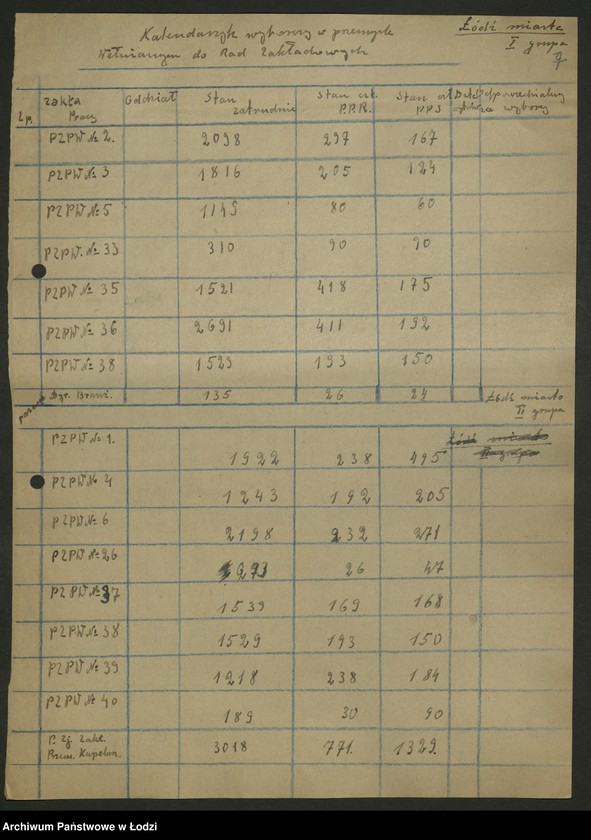 Kalendarzyk wyborczy w przemyśle
Wełnianym do Rad Zakładowych
Łódź miasto
I grupa
7
Lp. Zakła Pracy Oddział Stan zatrudnie Stan czł. P.P.R. Stan czł PPS Data
wybory
PZPW № 2. 2098 297 167
PZPW № 3 1816 205 124
PZPW № 5 1145 80 60
PZPW. № 33 310 90 90
PZPW № 35 1521 418 175
PZPW № 36 2691 411 192
PZPW № 38 1529 193 150
Dyr. Branż. 135 26 24
Łódź miasto
II grupa
PZPW № 1. 1922 238 495
Łódź miasto
II grupa
PZPW № 4 1243 192 205
PZPW № 6 2198 232 271
PZPW № 26 273 26 47
PZPW № 37 1539 169 168
PZPW № 38 1529 193 150
PZPW № 39 1218 238 184
PZPW № 40 189 30 90
P. Zj. Zakł.
Przem. Kapelan. 3018 771. 1329.
Archiwum Państwowe w Łodzi